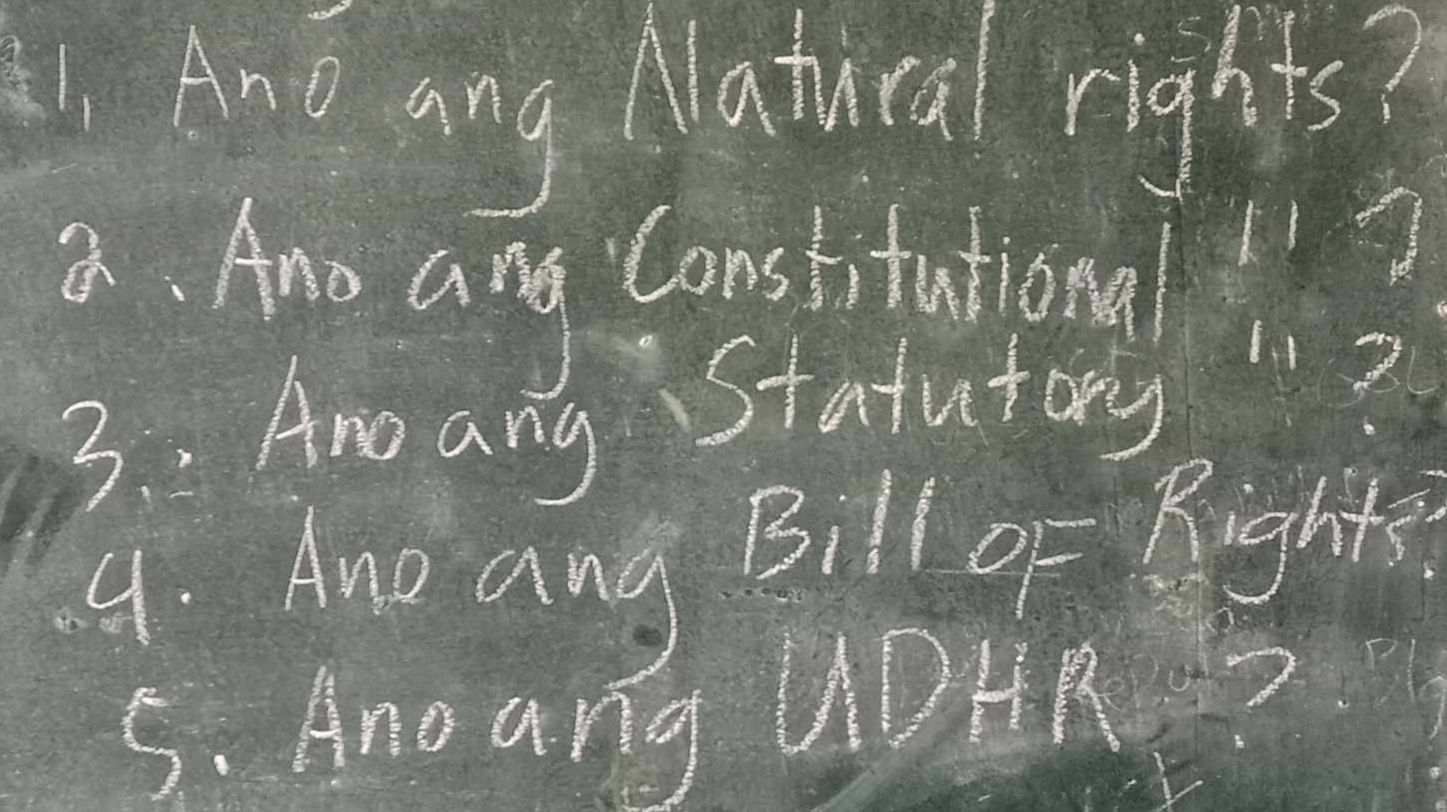 1. Ano ang Natural rights?
2. Ano ang Constitutional " ?
3. Ano ang Statutory " ?
4. Ano ang Bill OF Rights?
5. Ano ang UDHR ?